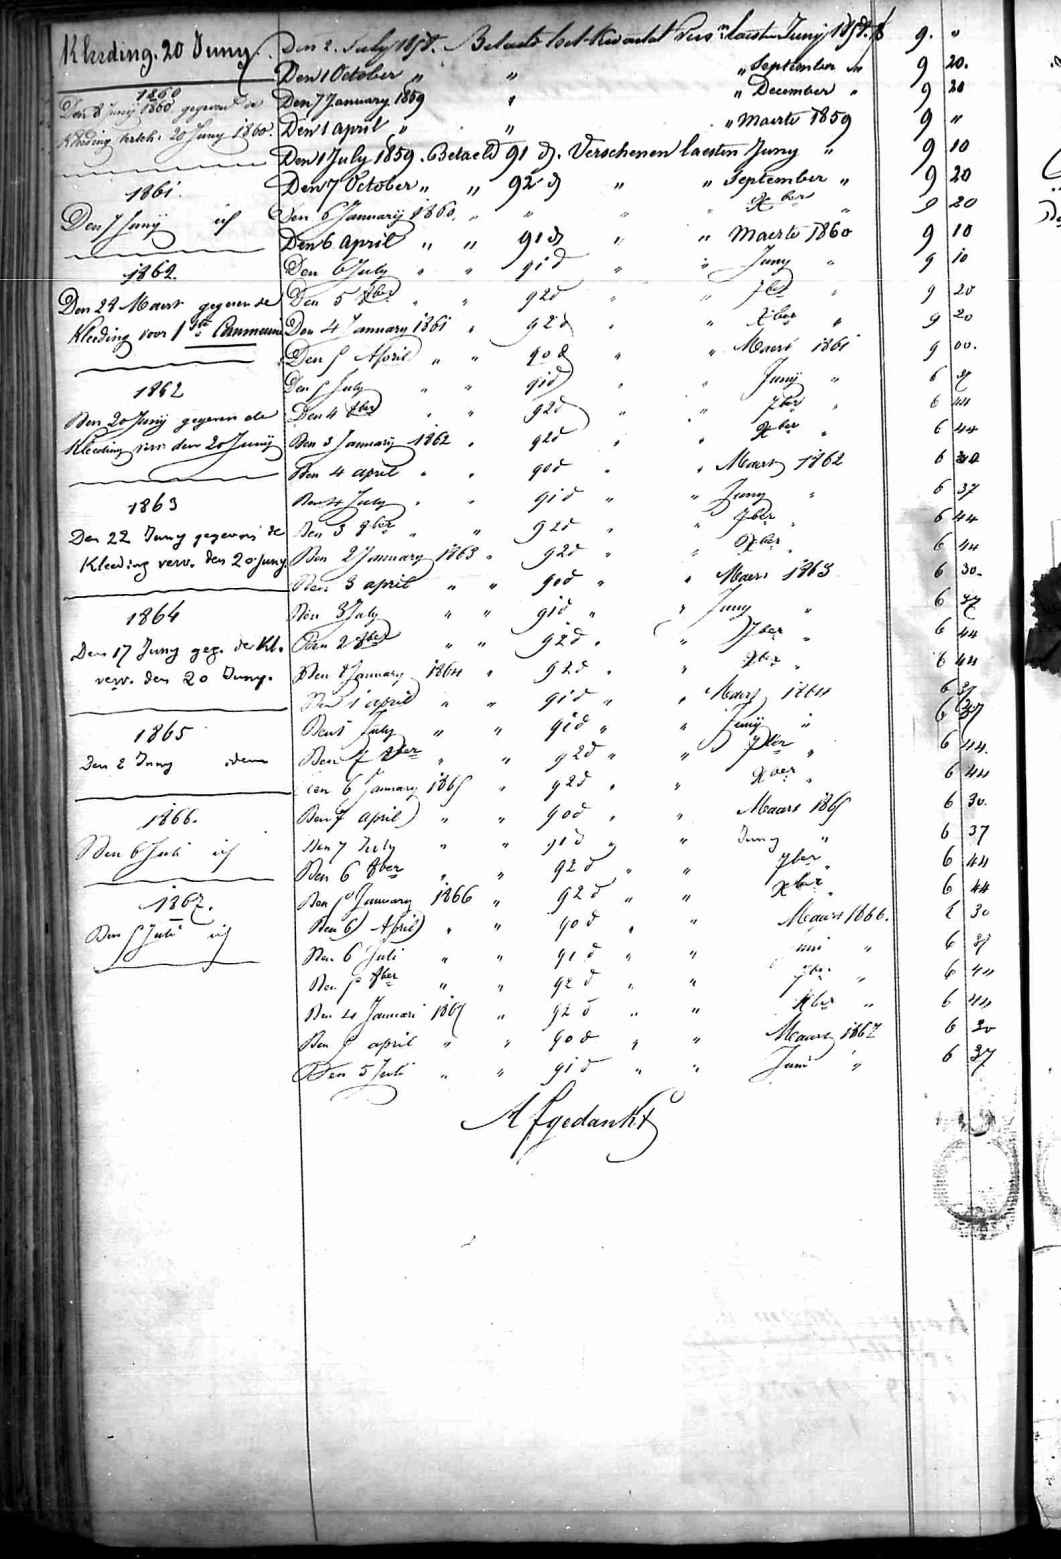 Kleeding. 20 Juny.
1860
Den 8 Junij 1860 gegeven de
Kleeding 20 Juny 1860.
1861.
Den 7 Junij id
1862.
Den 24 Maert gegeven de
Kleeding voor 1ste Communie
1862
Den 20 Junij gegeven de
Kleeding verv. den 20 Junij
1863
Den 22 Juny gegeven de
Kleeding verv. den 20 Juny
1864
Den 17 Juny geg. de Kl.
verv. den 20 Juny.
1865
Den 2 Juny idem
1866.
Den 6 Juli id
1867.
Den 5 Juli id
Den 2. July 1858. Betaeld het Kwartal laesten Junij 1858. 9. "
Den 1 October " " " September " 9 20.
Den 7 January 1859 " " December " 9 20
Den 1 april " " " Maerte 1859 9 "
Den 1 July 1859. Betaeld 91 d. Verschenen laesten Juny " 9 10
Den 7 October " " 92 d " " September " 9 20
Den 6 Januarij 1860. " " " " Xber " 9 20
Den 6 april " " 91 d " " Maerte 1860 9 10
Den 6 July " " 91 d " " Juny " 9 10
Den 5 8ber " " 92 d " " 7ber " 9 20
Den 4 January 1861 " 92 d " " Xber " 9 20
Den 5 April " " 90 d " " Maert 1861 9 00.
Den 5 July " " 91 d " " Junij " 6 37
Den 4 8ber " " 92 d " " 7ber " 6 44
Den 3 Januarij 1862 " 92 d " " Xber " 6 44
Den 4 april " " 90 d " " Maert 1862 6 30
Den 4 July " " 91 d " " Juny " 6 37
Den 3 8ber " " 92 d " " 7ber " 6 44
Den 2 January 1863 " 92 d " " Xber " 6 44
Den 3 april " " 90 d " " Maert 1863 6 30.
Den 3 July " " 91 d " " Juny " 6 37
Den 2 8ber " " 92 d " " 7ber " 6 44
Den 8 January 1864 " 92 d " " Xber " 6 44
Den 1 april " " 91 d " " Maert 1864 6 37
Den 1 July " " 91 d " " Junij " 6 37
Den 7 8ber " " 92 d " " 7ber " 6 44.
Den 6 January 1865 " 92 d " " Xber " 6 44
Den 7 april " " 90 d " " Maart 1865 6 30.
Den 7 July " " 91 d " " Juny " 6 37
Den 6 8ber " " 92 d " " 7ber " 6 44
Den 5 January 1866 " 92 d " " Xber " 6 44
Den 6 April " " 90 d " " Maart 1866. 6 30
Den 6 Juli " " 91 d " " " 6 37
Den 5 8ber " " 92 d " " 7ber " 6 44
Den 4 Januari 1867 " 92 d " " Xber " 6 44
Den 5 april " " 90 d " " Maart 1867 6 30
Den 5 Juli " " 91 d " " Juni " 6 37
Afgedankt